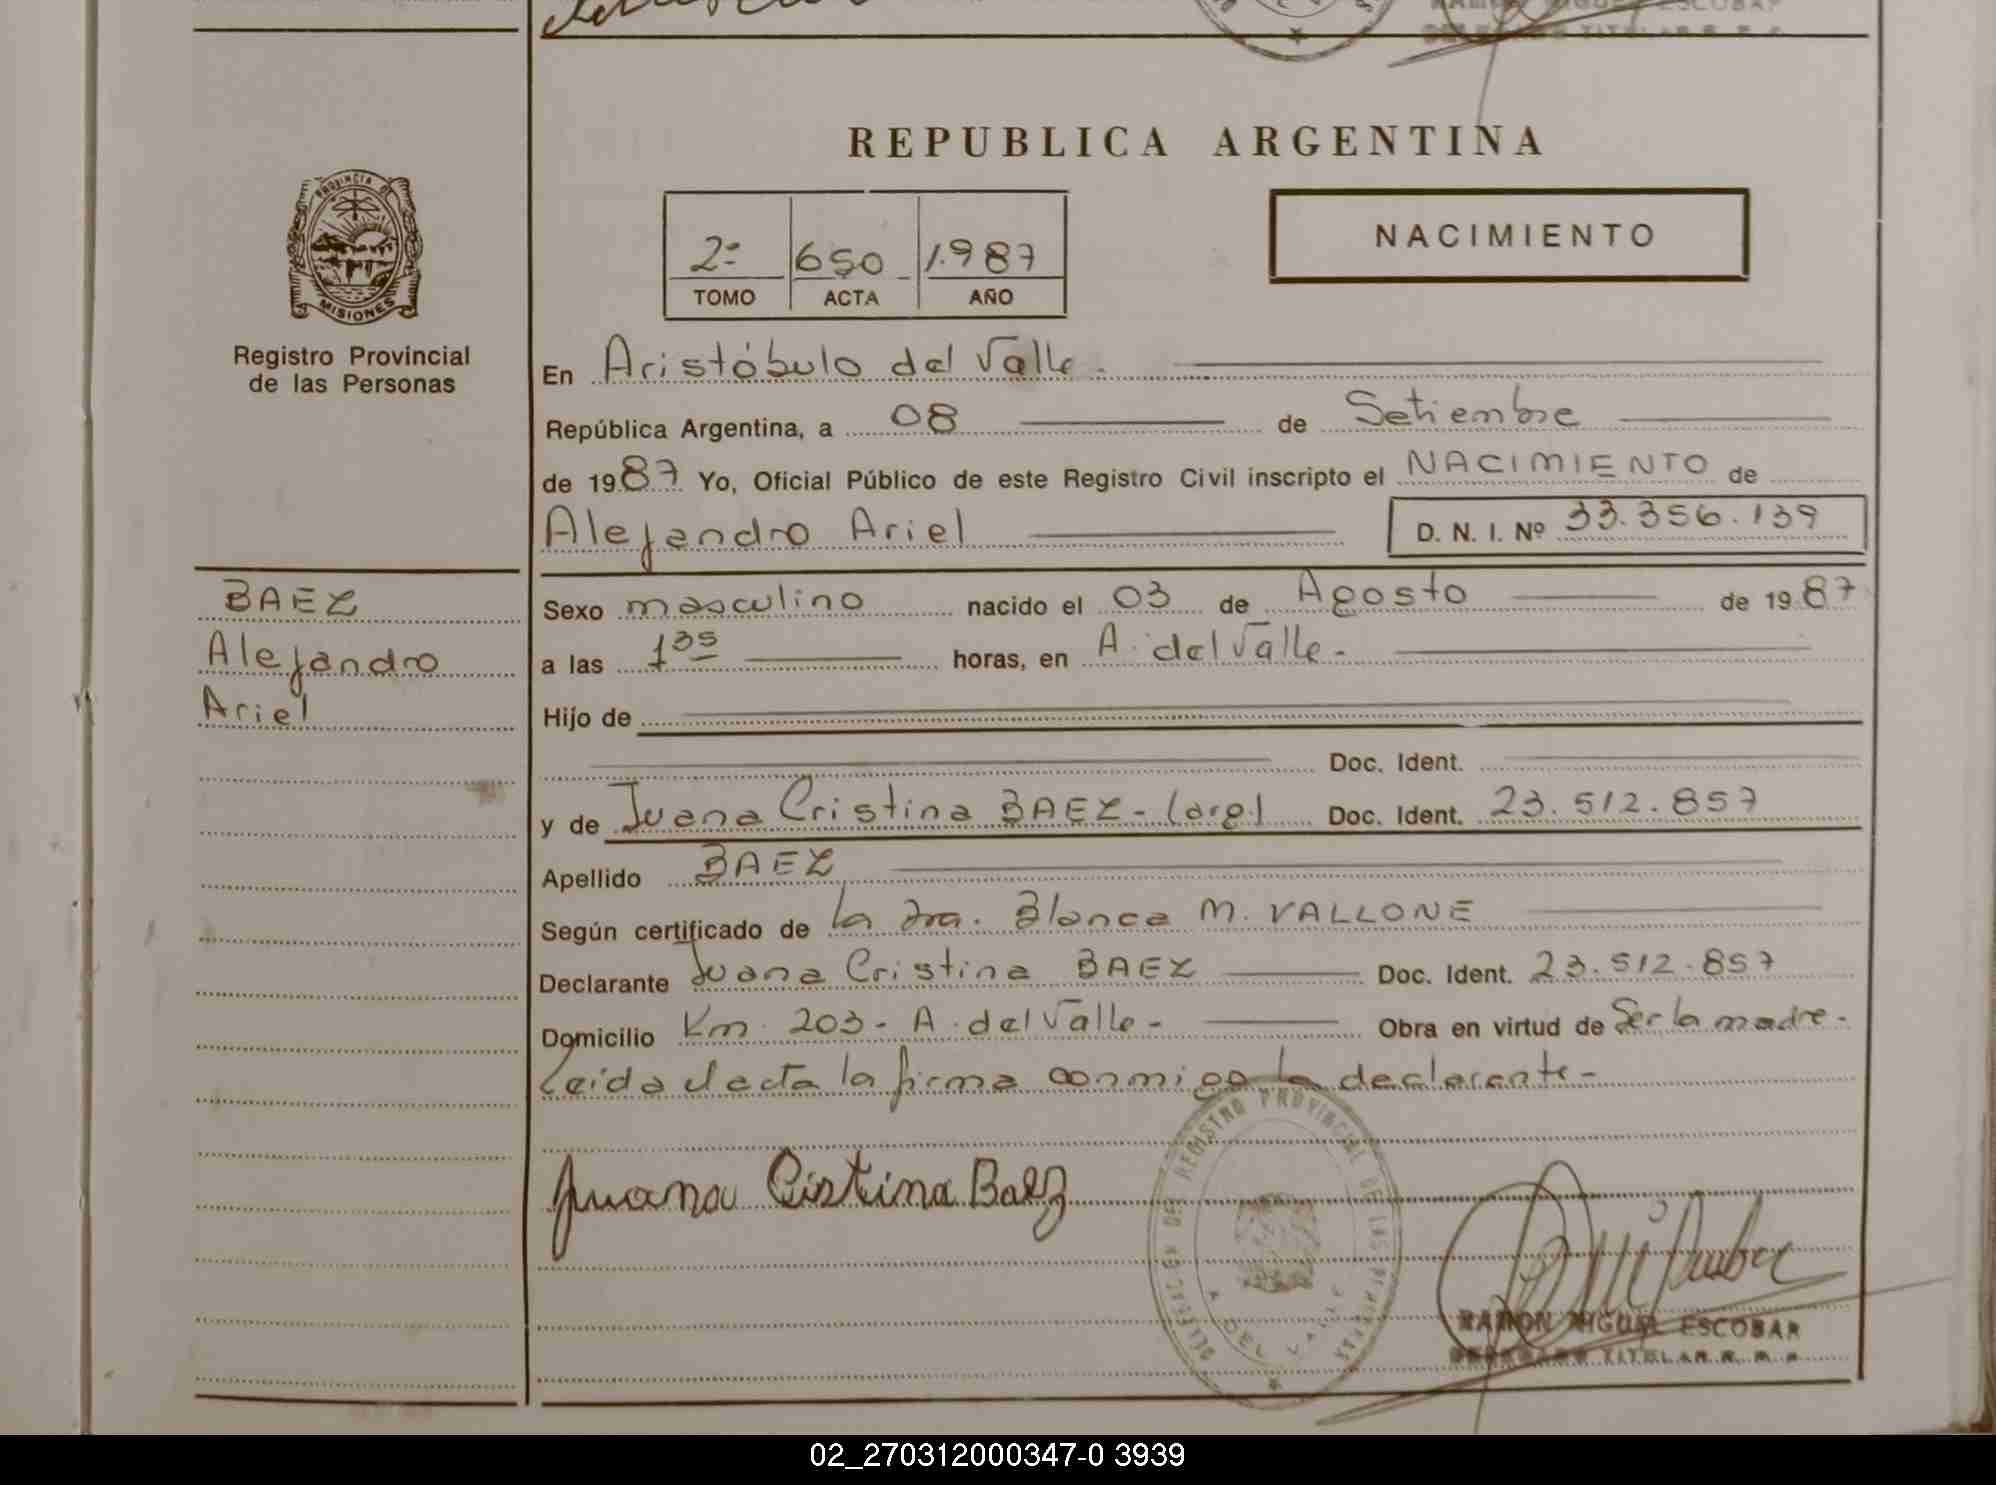 REPUBLICA ARGENTINA
PROVINCIA DE
MISIONES
Registro Provincial
de las Personas
2º 650 1.987
TOMO ACTA AÑO
NACIMIENTO
En Aristóbulo del Valle.
República Argentina, a 08 de Setiembre
de 1987 Yo, Oficial Público de este Registro Civil inscripto el NACIMIENTO de
Alejandro Ariel D. N. I. Nº 33.356.139
BAEZ
Alejandro
Ariel
Sexo masculino nacido el 03 de Agosto de 1987
a las 1 35 horas, en A. del Valle.-
Hijo de
Doc. Ident.
y de Juana Cristina BAEZ - (arg.) Doc. Ident. 23.512.857
Apellido BAEZ
Según certificado de la Dra. Blanca M. VALLONE
Declarante Juana Cristina BAEZ Doc. Ident. 23.512.857
Domicilio Km. 203 - A. del Valle - Obra en virtud de Ser la madre.-
Leida el acta la firma conmigo la declarante -
Juana Cistina Baez
REGISTRO PROVINCIAL DE LAS PERSONAS
A. DEL VALLE
RAMON MIGUEL ESCOBAR
TITULAR
02_270312000347-0 3939